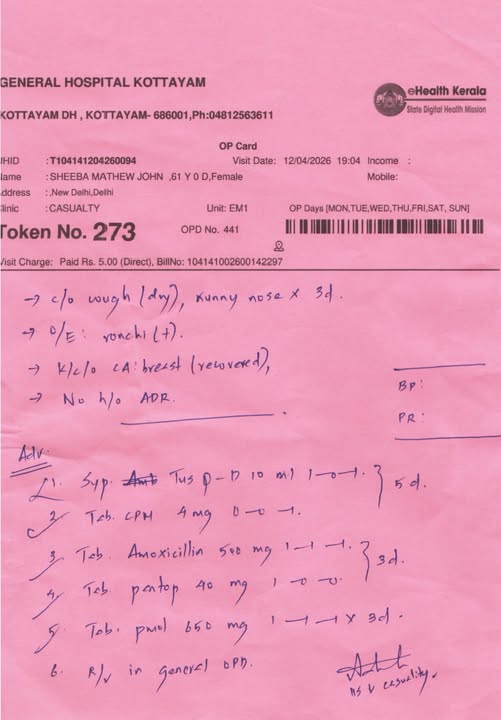 GENERAL HOSPITAL KOTTAYAM
eHealth Kerala
State Digital Health Mission
KOTTAYAM DH , KOTTAYAM- 686001,Ph:04812563611
OP Card
JHID :T104141204260094 Visit Date: 12/04/2026 19:04 Income :
Name : SHEEBA MATHEW JOHN ,61 Y 0 D,Female Mobile:
Address : ,New Delhi,Delhi
Clinic : CASUALTY Unit: EM1 OP Days [MON,TUE,WED,THU,FRI,SAT, SUN]
Token No. 273 OPD No. 441
Visit Charge: Paid Rs. 5.00 (Direct), BillNo: 104141002600142297
→ c/o cough (dry), runny nose x 3d.
→ O/E: ronchi (+).
→ K/c/o CA: breast (recovered),
→ No h/o ADR.
BP:
PR:
Adv.
1. Syp. Tus D-D 10 ml 1-0-1. } 5 d.
2. Tab. CPM 4 mg 0-0-1.
3. Tab. Amoxicillin 500 mg 1-1-1. } 3d.
4. Tab. pantop 40 mg 1-0-0.
5. Tab. pmol 650 mg 1-1-1 x 3d.
6. R/v in general OPD.
casuality.